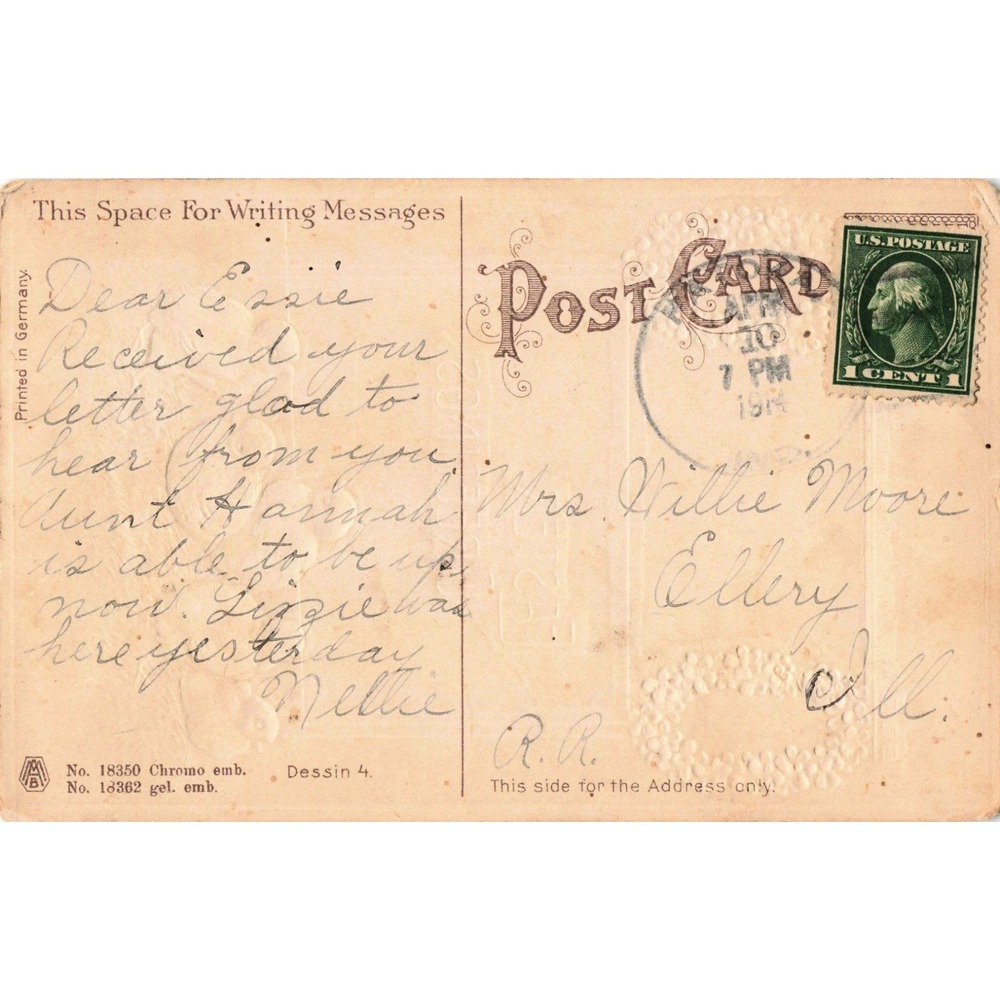 This Space For Writing Messages
Printed in Germany.
Dear Essie
Received your
letter glad to
hear from you.
Aunt Hannah
is able to be up
now. Lizzie was
here yesterday
Nellie
MAB
No. 18350 Chromo emb.
No. 18362 gel. emb.
Dessin 4.
POST CARD
APR
10
7 PM
1914
U.S. POSTAGE
1 CENT 1
Mrs. Willie Moore
Ellery
Ill.
R. R.
This side for the Address only.